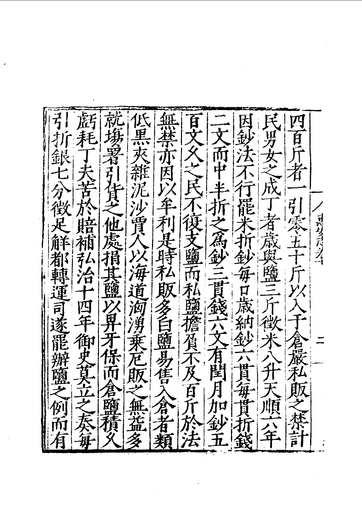 四百斤者一引零五十斤以入于倉嚴私販之禁計
民男女之成丁者歲與鹽三斤徵米八升天順六年
因鈔法不行罷米折鈔每口歲納鈔六貫每貫折錢
二文而中半折之為鈔三貫錢六文有閏月加鈔五
百文久之民不復支鹽而私鹽擔負不及百斤於法
無禁亦因以牟利是時私販多白鹽易售入倉者類
低黑夾雜泥沙賈人以海道洶湧乗危販之無益多
就塲署引貨之他處捐其鹽以畀牙保而倉鹽積久
虧耗丁夫苦於賠補弘治十四年御史莫立之奏每
引折銀七分徵足觧都轉運司遂罷辦鹽之例而有